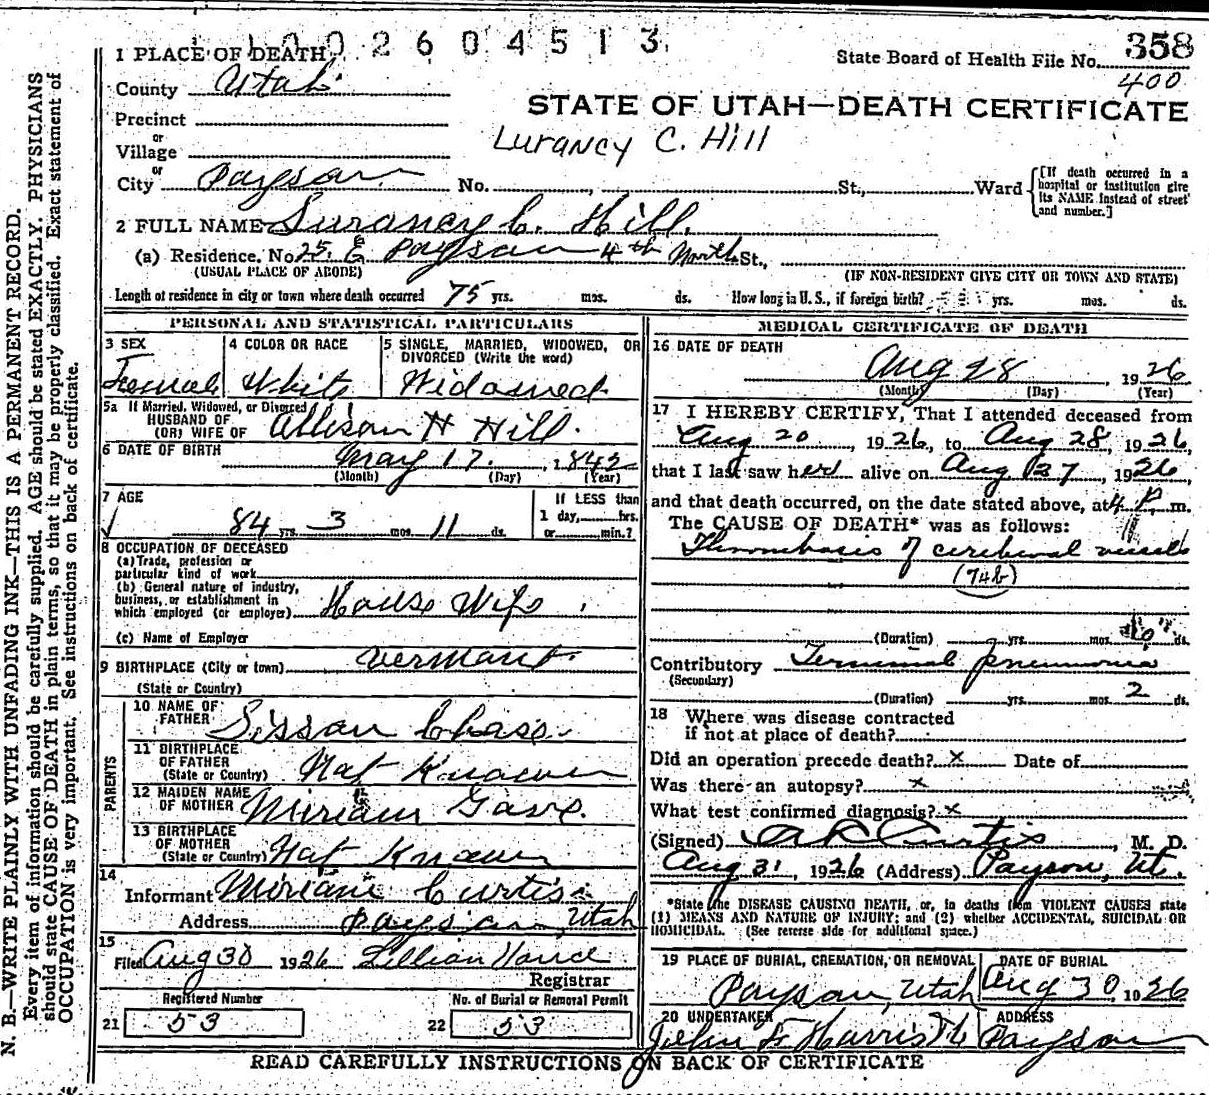 1002604513
358
State Board of Health File No.
400
1 PLACE OF DEATH
County Utah
STATE OF UTAH—DEATH CERTIFICATE
Precinct
or
Village
Lurancy C. Hill
or
City Payson No. , St., Ward
[If death occurred in a hospital or institution give its NAME instead of street and number.]
2 FULL NAME Lurancy C. Hill.
(a) Residence. No 25. E Payson 4th North St.,
(USUAL PLACE OF ABODE) (IF NON-RESIDENT GIVE CITY OR TOWN AND STATE)
Length of residence in city or town where death occurred 75 yrs. mos. ds. How long in U. S., if foreign birth? yrs. mos. ds.
PERSONAL AND STATISTICAL PARTICULARS
3 SEX
Female
4 COLOR OR RACE
White
5 SINGLE, MARRIED, WIDOWED, OR
DIVORCED (Write the word)
Widowed
5a If Married, Widowed, or Divorced
HUSBAND OF
(OR) WIFE OF Allison H Hill.
6 DATE OF BIRTH
May 17. , 1842
(Month) (Day) (Year)
7 AGE
84 yrs. 3 mos. 11 ds.
If LESS than
1 day, hrs.
or min.?
8 OCCUPATION OF DECEASED
(a) Trade, profession or
particular kind of work
(b) General nature of industry,
business, or establishment in
which employed (or employer) House Wife
(c) Name of Employer
9 BIRTHPLACE (City or town) Vermont.
(State or Country)
PARENTS
10 NAME OF
FATHER Sissan Chase
11 BIRTHPLACE
OF FATHER
(State or Country) Not Known
12 MAIDEN NAME
OF MOTHER Miriam Gove.
13 BIRTHPLACE
OF MOTHER
(State or Country) Not Known
14
Informant Miriam Curtis
Address Payson, Utah
15
Filed Aug 30 1926 Lillian Vance
Registrar
Registered Number
21 53
No. of Burial or Removal Permit
22 53
MEDICAL CERTIFICATE OF DEATH
16 DATE OF DEATH
Aug 28 , 1926
(Month) (Day) (Year)
17 I HEREBY CERTIFY, That I attended deceased from
Aug 20 , 1926, to Aug 28, 1926,
that I last saw her alive on Aug 27, 1926
and that death occurred, on the date stated above, at 4 P. m.
The CAUSE OF DEATH* was as follows:
Thrombosis of cerebral vessels
(74b)
(Duration) yrs. mos. 10 ds.
Contributory Terminal pneumonia
(Secondary)
(Duration) yrs. mos. 2 ds.
18 Where was disease contracted
if not at place of death?
Did an operation precede death? x Date of
Was there an autopsy? x
What test confirmed diagnosis? x
(Signed) A R Curtis, M. D.
Aug 31, 1926 (Address) Payson, Ut.
*State the DISEASE CAUSING DEATH, or, in deaths from VIOLENT CAUSES state
(1) MEANS AND NATURE OF INJURY; and (2) whether ACCIDENTAL, SUICIDAL OR
HOMICIDAL. (See reverse side for additional space.)
19 PLACE OF BURIAL, CREMATION, OR REMOVAL
Payson, Utah
DATE OF BURIAL
Aug 30, 1926
20 UNDERTAKER
John F Harris
ADDRESS
Payson
READ CAREFULLY INSTRUCTIONS ON BACK OF CERTIFICATE
N. B.—WRITE PLAINLY WITH UNFADING INK—THIS IS A PERMANENT RECORD.
Every item of information should be carefully supplied. AGE should be stated EXACTLY. PHYSICIANS
should state CAUSE OF DEATH in plain terms, so that it may be properly classified. Exact statement of
OCCUPATION is very important. See instructions on back of certificate.